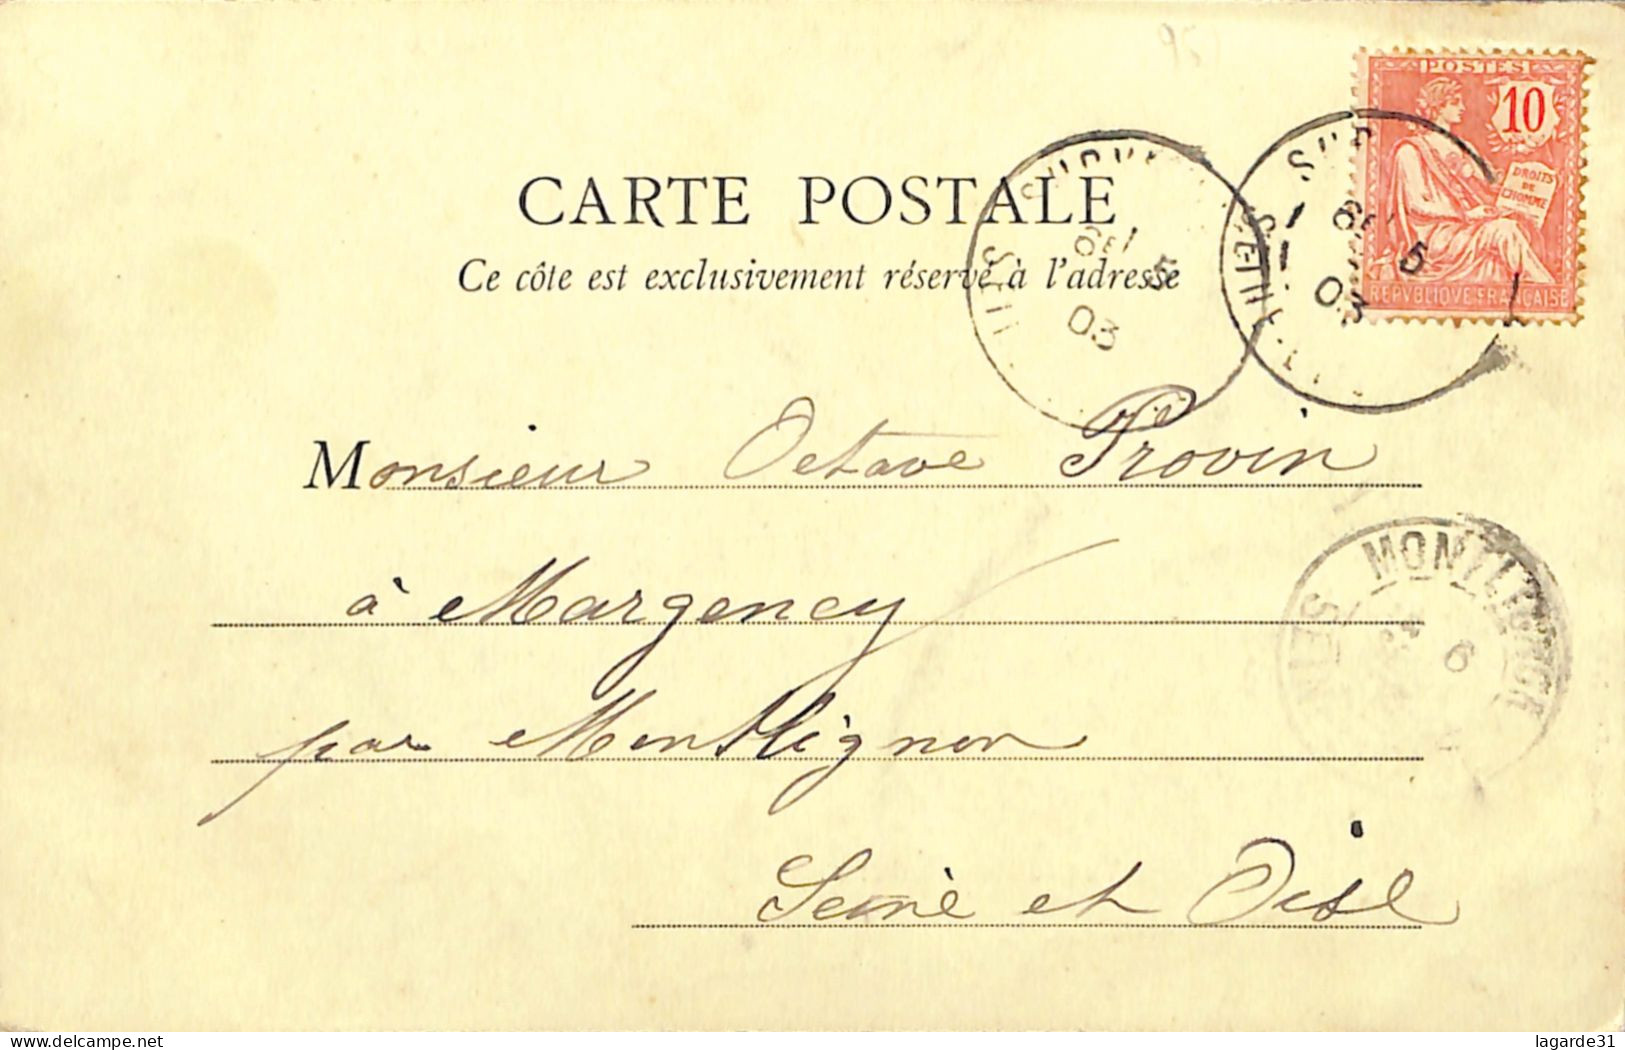 POSTES
10
DROITS
DE
L'HOMME
REPVBLIQVE FRANÇAISE
5
03
5
03
CARTE POSTALE
Ce côte est exclusivement réservé à l'adresse
Monsieur Octave Provin
à Margency
MONTLIGNON
SEIN
6
par Montlignon
Seine et Oise
www.delcampe.net
lagarde31